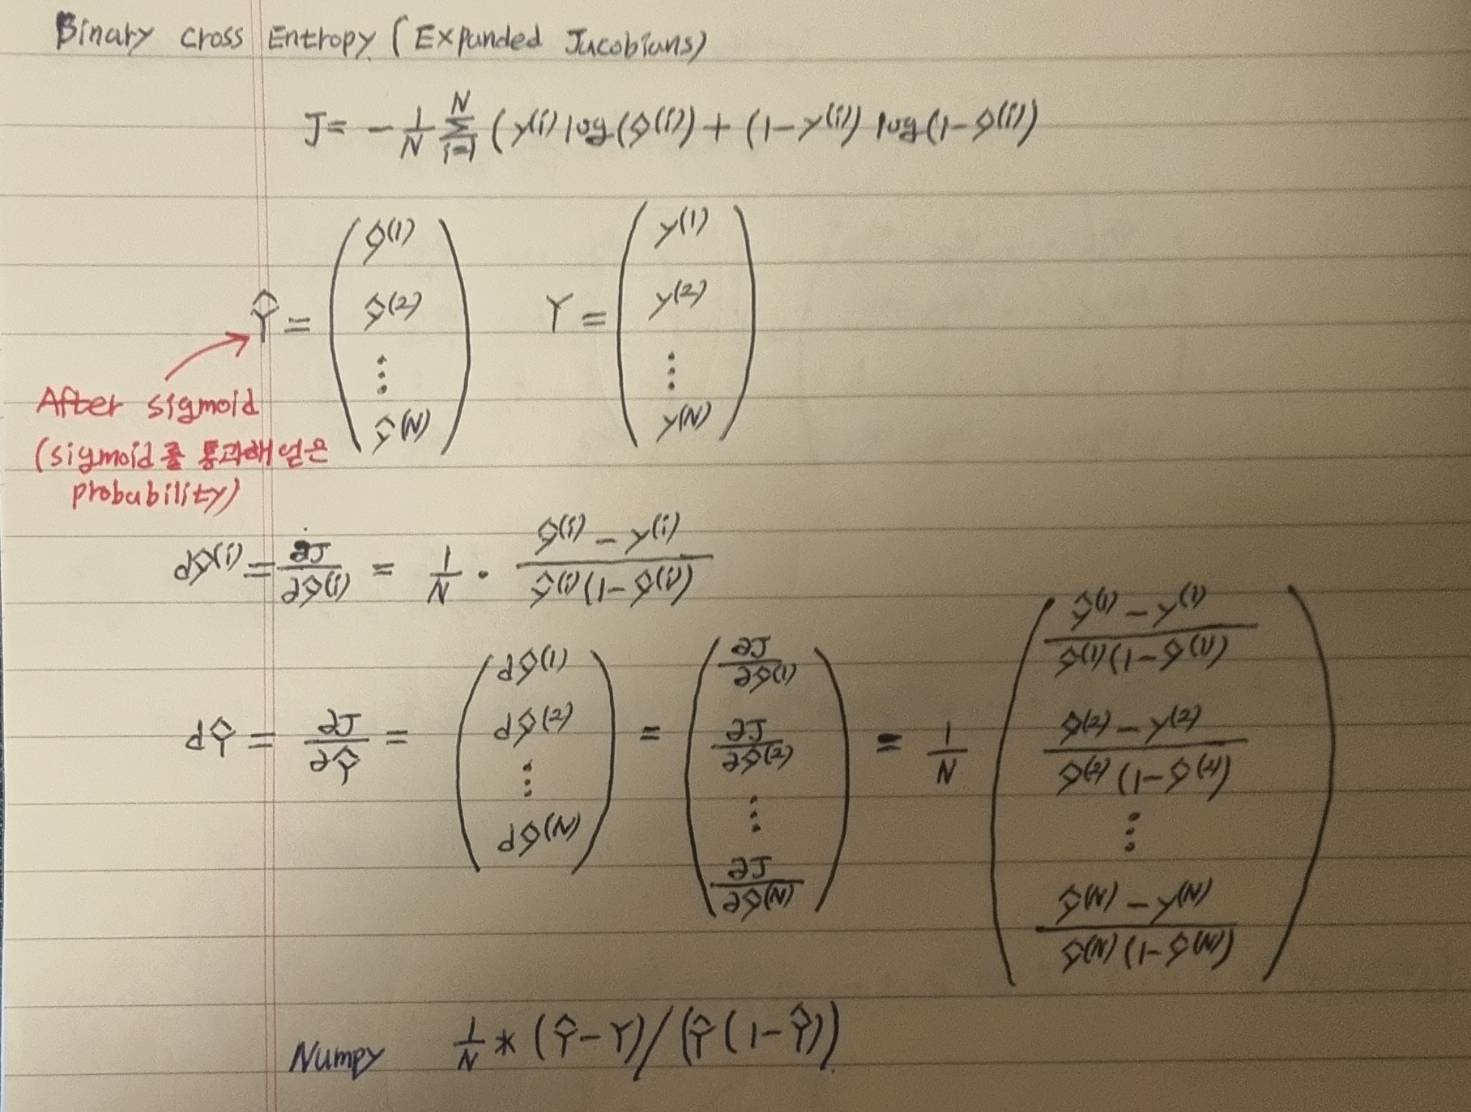 Binary cross Entropy (Expanded Jacobians)
J = - 1/N Σ_{i=1}^{N} (y^(i) log(ŷ^(i)) + (1-y^(i)) log(1-ŷ^(i))
Ŷ = ( ŷ^(1) ŷ^(2) ⋮ ŷ^(N) ) Y = ( y^(1) y^(2) ⋮ y^(N) )
After sigmoid
(sigmoid를 통과해 얻은
probability)
dŷ^(i) = ∂J/∂ŷ^(i) = 1/N · (ŷ^(i) - y^(i)) / (ŷ^(i)(1-ŷ^(i)))
dŶ = ∂J/∂Ŷ = ( dŷ^(1) dŷ^(2) ⋮ dŷ^(N) ) = ( ∂J/∂ŷ^(1) ∂J/∂ŷ^(2) ⋮ ∂J/∂ŷ^(N) ) = 1/N ( (ŷ^(1) - y^(1)) / (ŷ^(1)(1-ŷ^(1))) (ŷ^(2) - y^(2)) / (ŷ^(2)(1-ŷ^(2))) ⋮ (ŷ^(N) - y^(N)) / (ŷ^(N)(1-ŷ^(N))) )
Numpy 1/N * (Ŷ-Y)/(Ŷ(1-Ŷ))